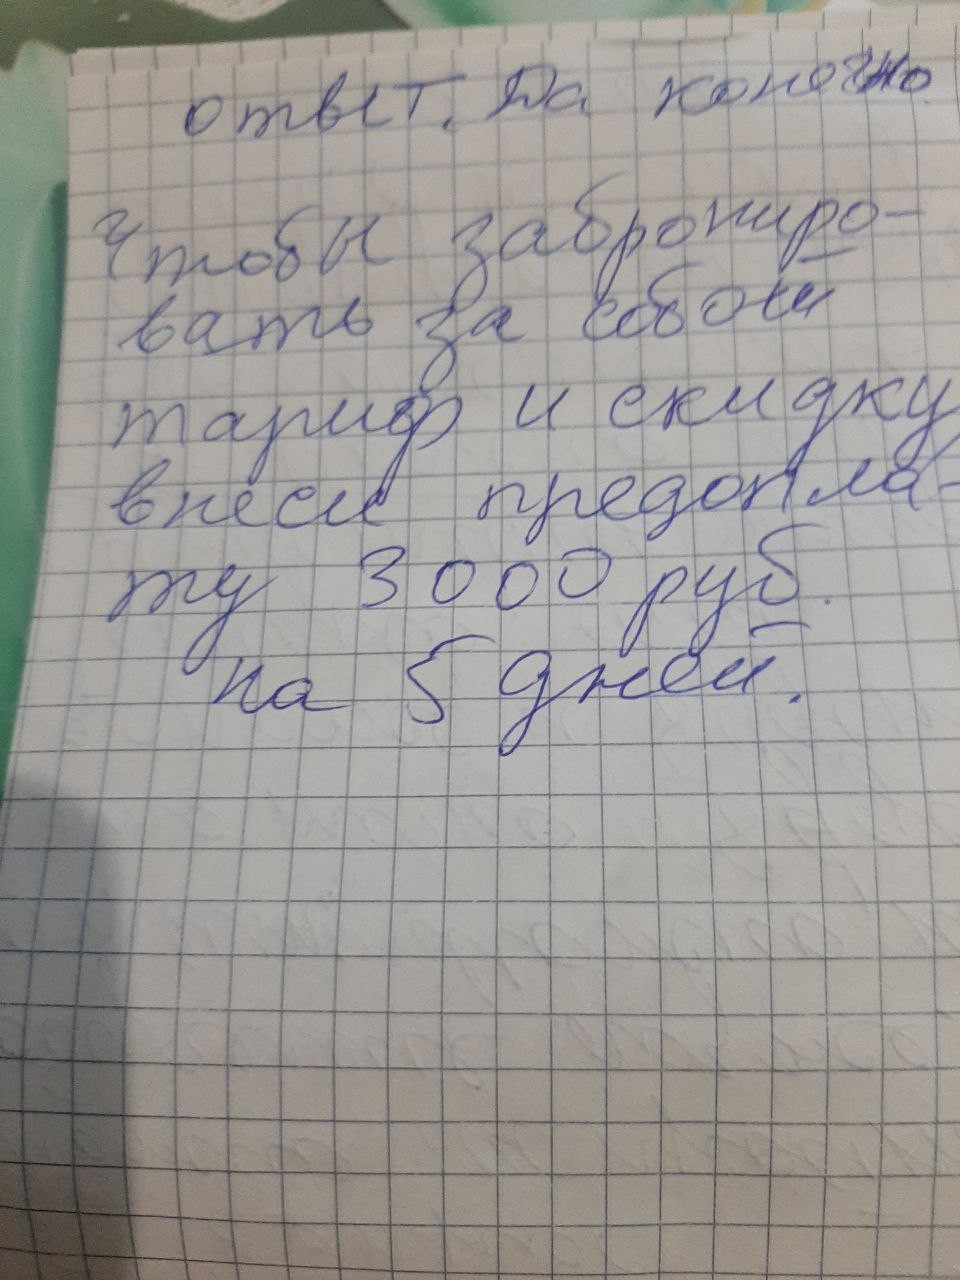 ответ. Да конечно
Чтобы заброниро-
вать за собой
тариф и скидку
внеси предопла-
ту 3000 руб.
на 5 дней.